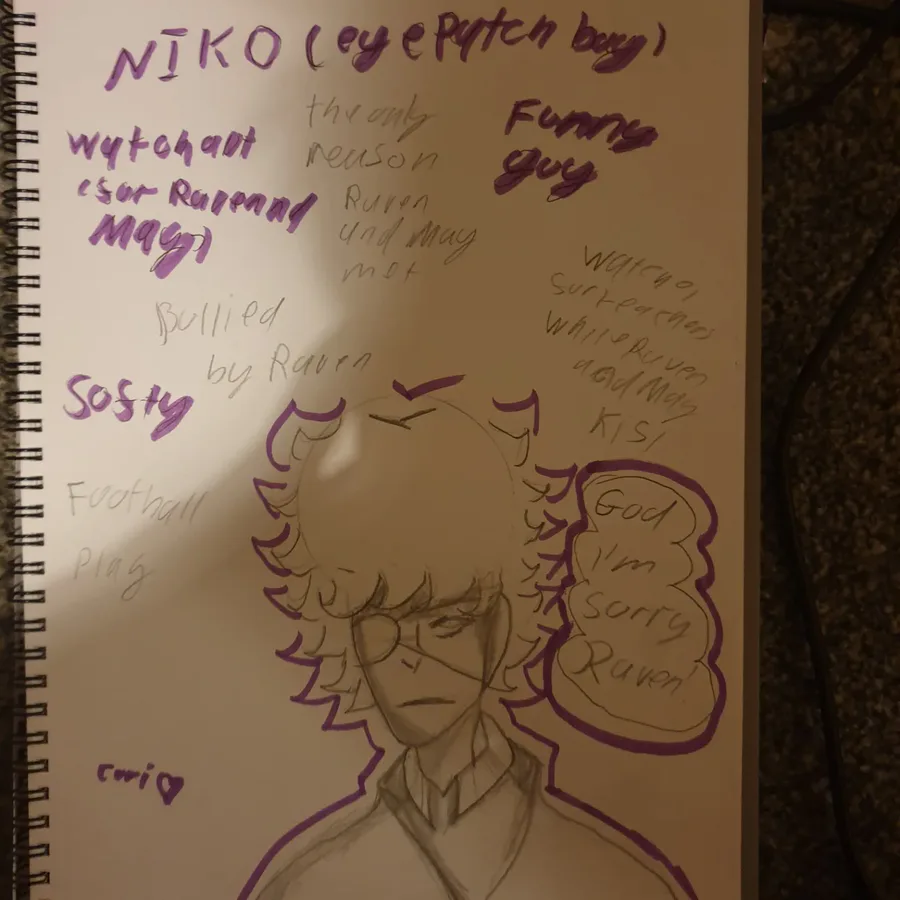 NIKO (eyepatch boy)
the only
reason
Raven
and May
met
Funny
guy
watchout
(for Raven and
May)
Bullied
by Raven
Softy
Football
Play
Watch
for teachers
while Raven
and May
Kiss
God
I'm
Sorry
Raven